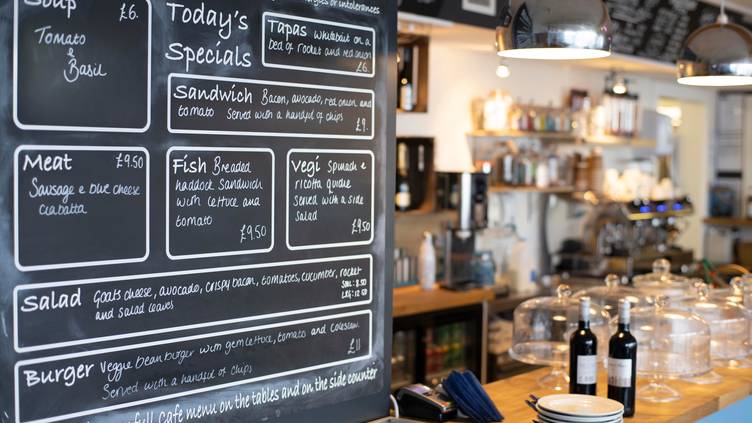 Soup £6.
Tomato
&
Basil
allergies or intolerances.
Today's
Specials
Tapas whitebait on a
bed of rocket and red onion
£6
Sandwich Bacon, avocado, red onion and
tomato Served with a handful of chips
£9.
Meat £9.50
Sausage & blue cheese
ciabatta
Fish Breaded
haddock sandwich
with lettuce and
tomato
£9.50
Vegi Spinach &
ricotta quiche
served with a side
salad
£9.50
Salad Goats cheese, avocado, crispy bacon, tomatoes, cucumber, rocket
and salad leaves
SML: 8.50
LRG: 12.50
Burger Veggie bean burger with gem lettuce, tomato and coleslaw.
Served with a handful of chips
£11
full cafe menu on the tables and on the side counter